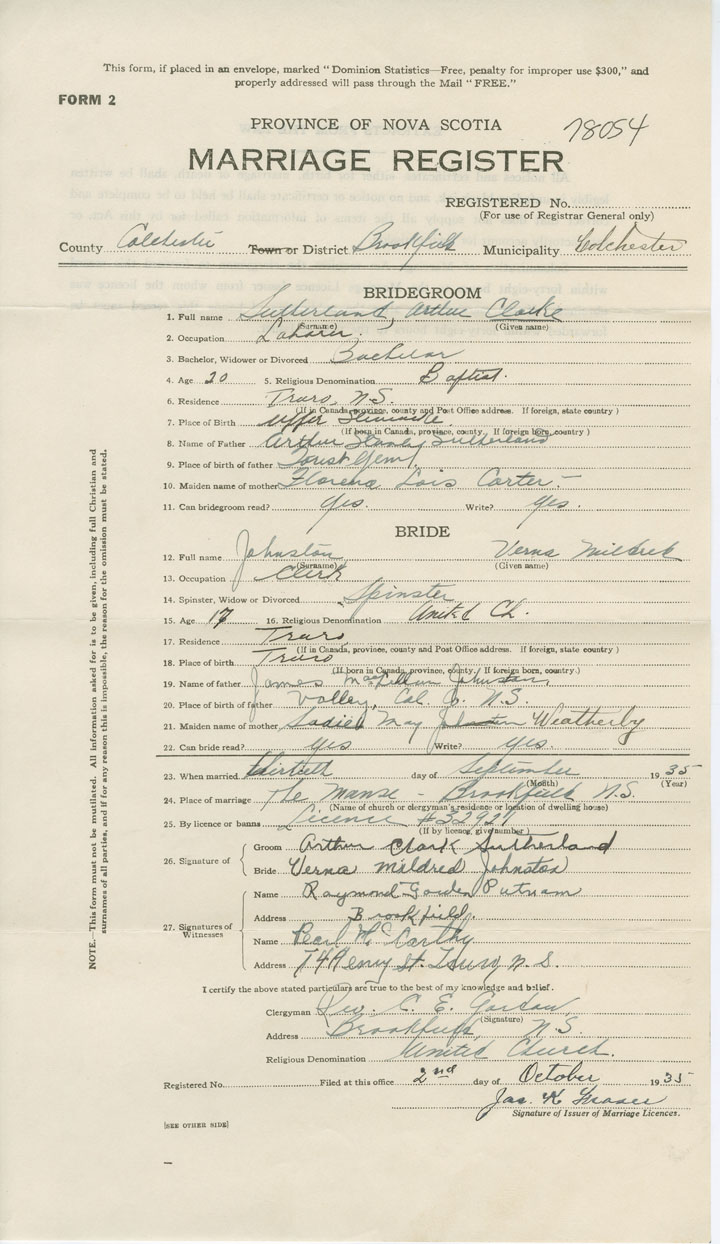 This form, if placed in an envelope, marked "Dominion Statistics—Free, penalty for improper use $300," and
properly addressed will pass through the Mail "FREE."
FORM 2
PROVINCE OF NOVA SCOTIA 78054
MARRIAGE REGISTER
REGISTERED No.
(For use of Registrar General only)
County Colchester Town or District Brookfield Municipality Colchester
BRIDEGROOM
1. Full name Sutherland, Arthur Clarke
(Surname) (Given name)
2. Occupation Laborer.
3. Bachelor, Widower or Divorced Bachelor
4. Age 20 5. Religious Denomination Baptist.
6. Residence Truro, N.S.
(If in Canada, province, county and Post Office address. If foreign, state country)
7. Place of Birth Upper Stewiacke.
(If born in Canada, province, county. If foreign born, country)
8. Name of Father Arthur Stanley Sutherland
9. Place of birth of father
10. Maiden name of mother Florena Lois Carter.-
11. Can bridegroom read? Yes. Write? Yes.
BRIDE
12. Full name Johnston Verna Mildred
(Surname) (Given name)
13. Occupation Clerk
14. Spinster, Widow or Divorced Spinster
15. Age 17 16. Religious Denomination United Ch.
17. Residence Truro
(If in Canada, province, county and Post Office address. If foreign, state country)
18. Place of birth Truro
(If born in Canada, province, county. If foreign born, country.)
19. Name of father James Johnston,
20. Place of birth of father Valley, Col. Co. N.S.
21. Maiden name of mother Sadie May Johnston Weatherby
22. Can bride read? Yes Write? Yes.
23. When married thirtieth day of September 1935
(Month) (Year)
24. Place of marriage The Manse - Brookfield N.S.
(Name of church or clergyman's residence or location of dwelling house)
25. By licence or banns Licence #32927
(If by licence, give number)
26. Signature of
Groom Arthur Clark Sutherland
Bride Verna Mildred Johnston
27. Signatures of Witnesses
Name Raymond Gordon Putnam
Address Brookfield,
Name Pearl McCarthy
Address 74 Henry St. Truro, N.S.
I certify the above stated particulars are true to the best of my knowledge and belief.
Clergyman Rev. C. E. Gordon,
(Signature)
Address Brookfield, N.S.
Religious Denomination United Church.
Registered No. Filed at this office 2nd day of October 1935
Jas. K. Fraser
Signature of Issuer of Marriage Licences.
[SEE OTHER SIDE]
NOTE.—This form must not be mutilated. All information asked for is to be given, including full Christian and
surnames of all parties, and if for any reason this is impossible, the reason for the omission must be stated.